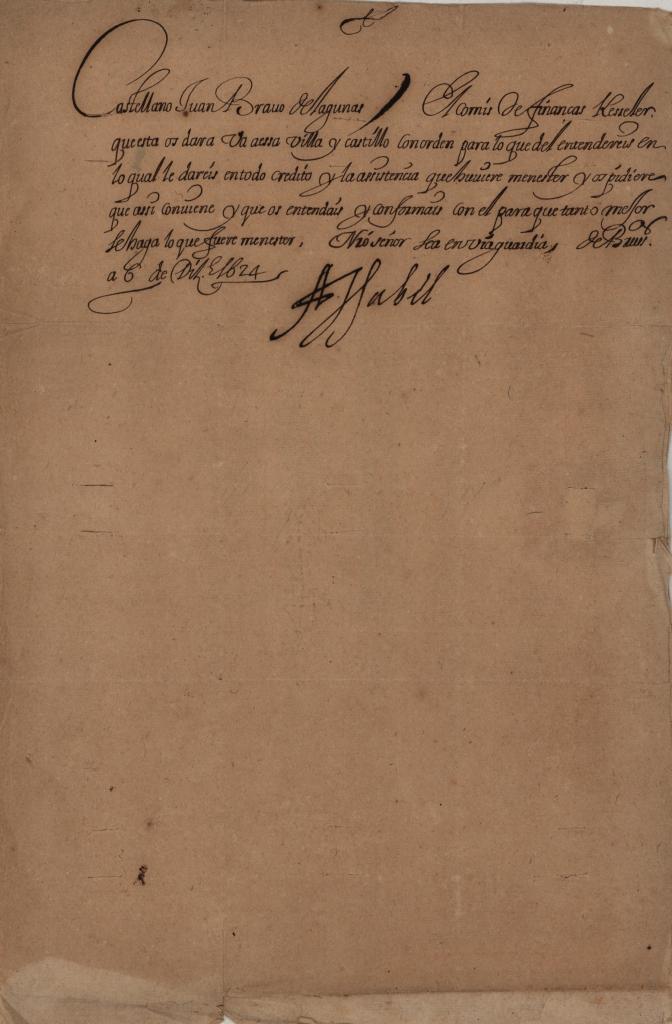 Castellano Juan Bravo de lagunas / El comis De finanças Kesseler
que esta os dara Va a essa Villa y castillo con orden para lo que del entendereis en
lo qual le dareis en todo credito y la assistencia que huuiere menester y os pidiere
que assi conuiene y que os entendais y conformais con el para que tanto mejor
se haga lo que fuere menester, Nro señor sea en vra guardia, de Brus.
a 6 de Diz.e 1624
A Isabel